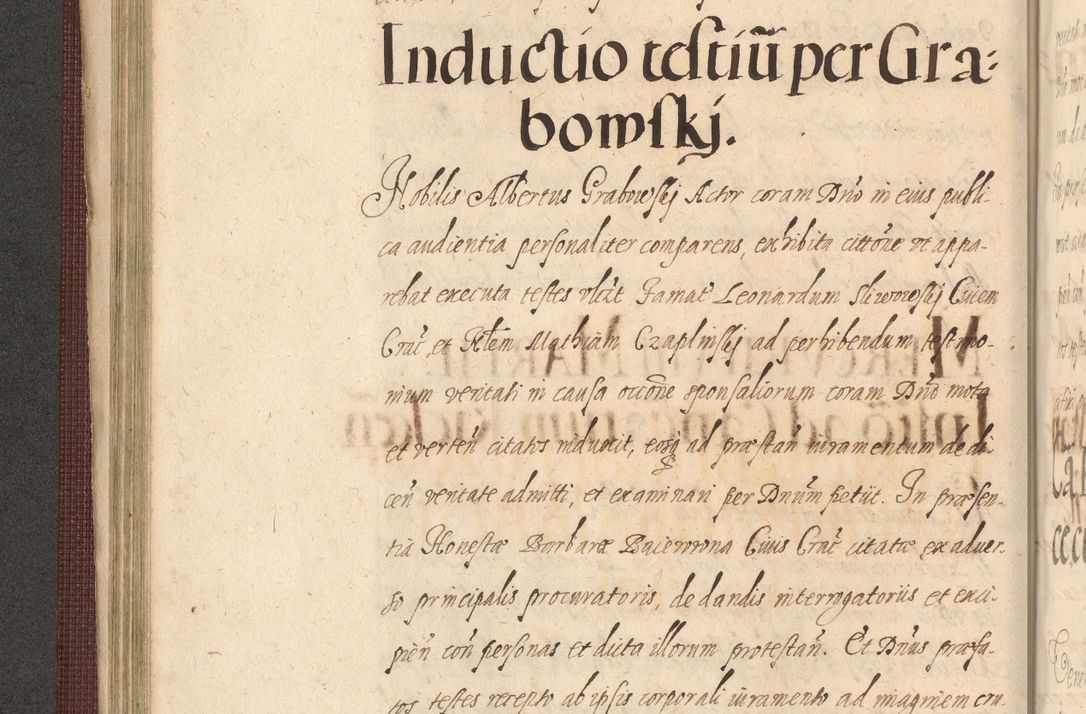 Inductio testiū per Gra-
bowskj.
Nobilis Albertus Grabowskj Actor coram Dno in eius publi-
ca audientia personaliter comparens, exhibita citt̃oe vt appa-
rebat executa testes vlizt Famat̃ Leonardum Sliwowskj Ciuem
Crac̃ et Mathiam Czaplinskj ad perhibendum testimo-
nium veritati in causa occõne sponsaliorum coram Dno mota
et verteñ citatos induxit, eosq ad præstañ iuramentum de di-
ceñ veritate admitti, et examinari per Dnum petiit. In præsen-
tia Honestæ Barbaræ Ciuis Crac̃ citatæ ex aduer-
so principalis procuratoris, de dandis interrogatoriis et exci-
pieñ coñ personas et dicta illorum protestañ. Et Dnus præfa-
tos testes recepto ab ipsis corporali iuramento ad imaginem cru-